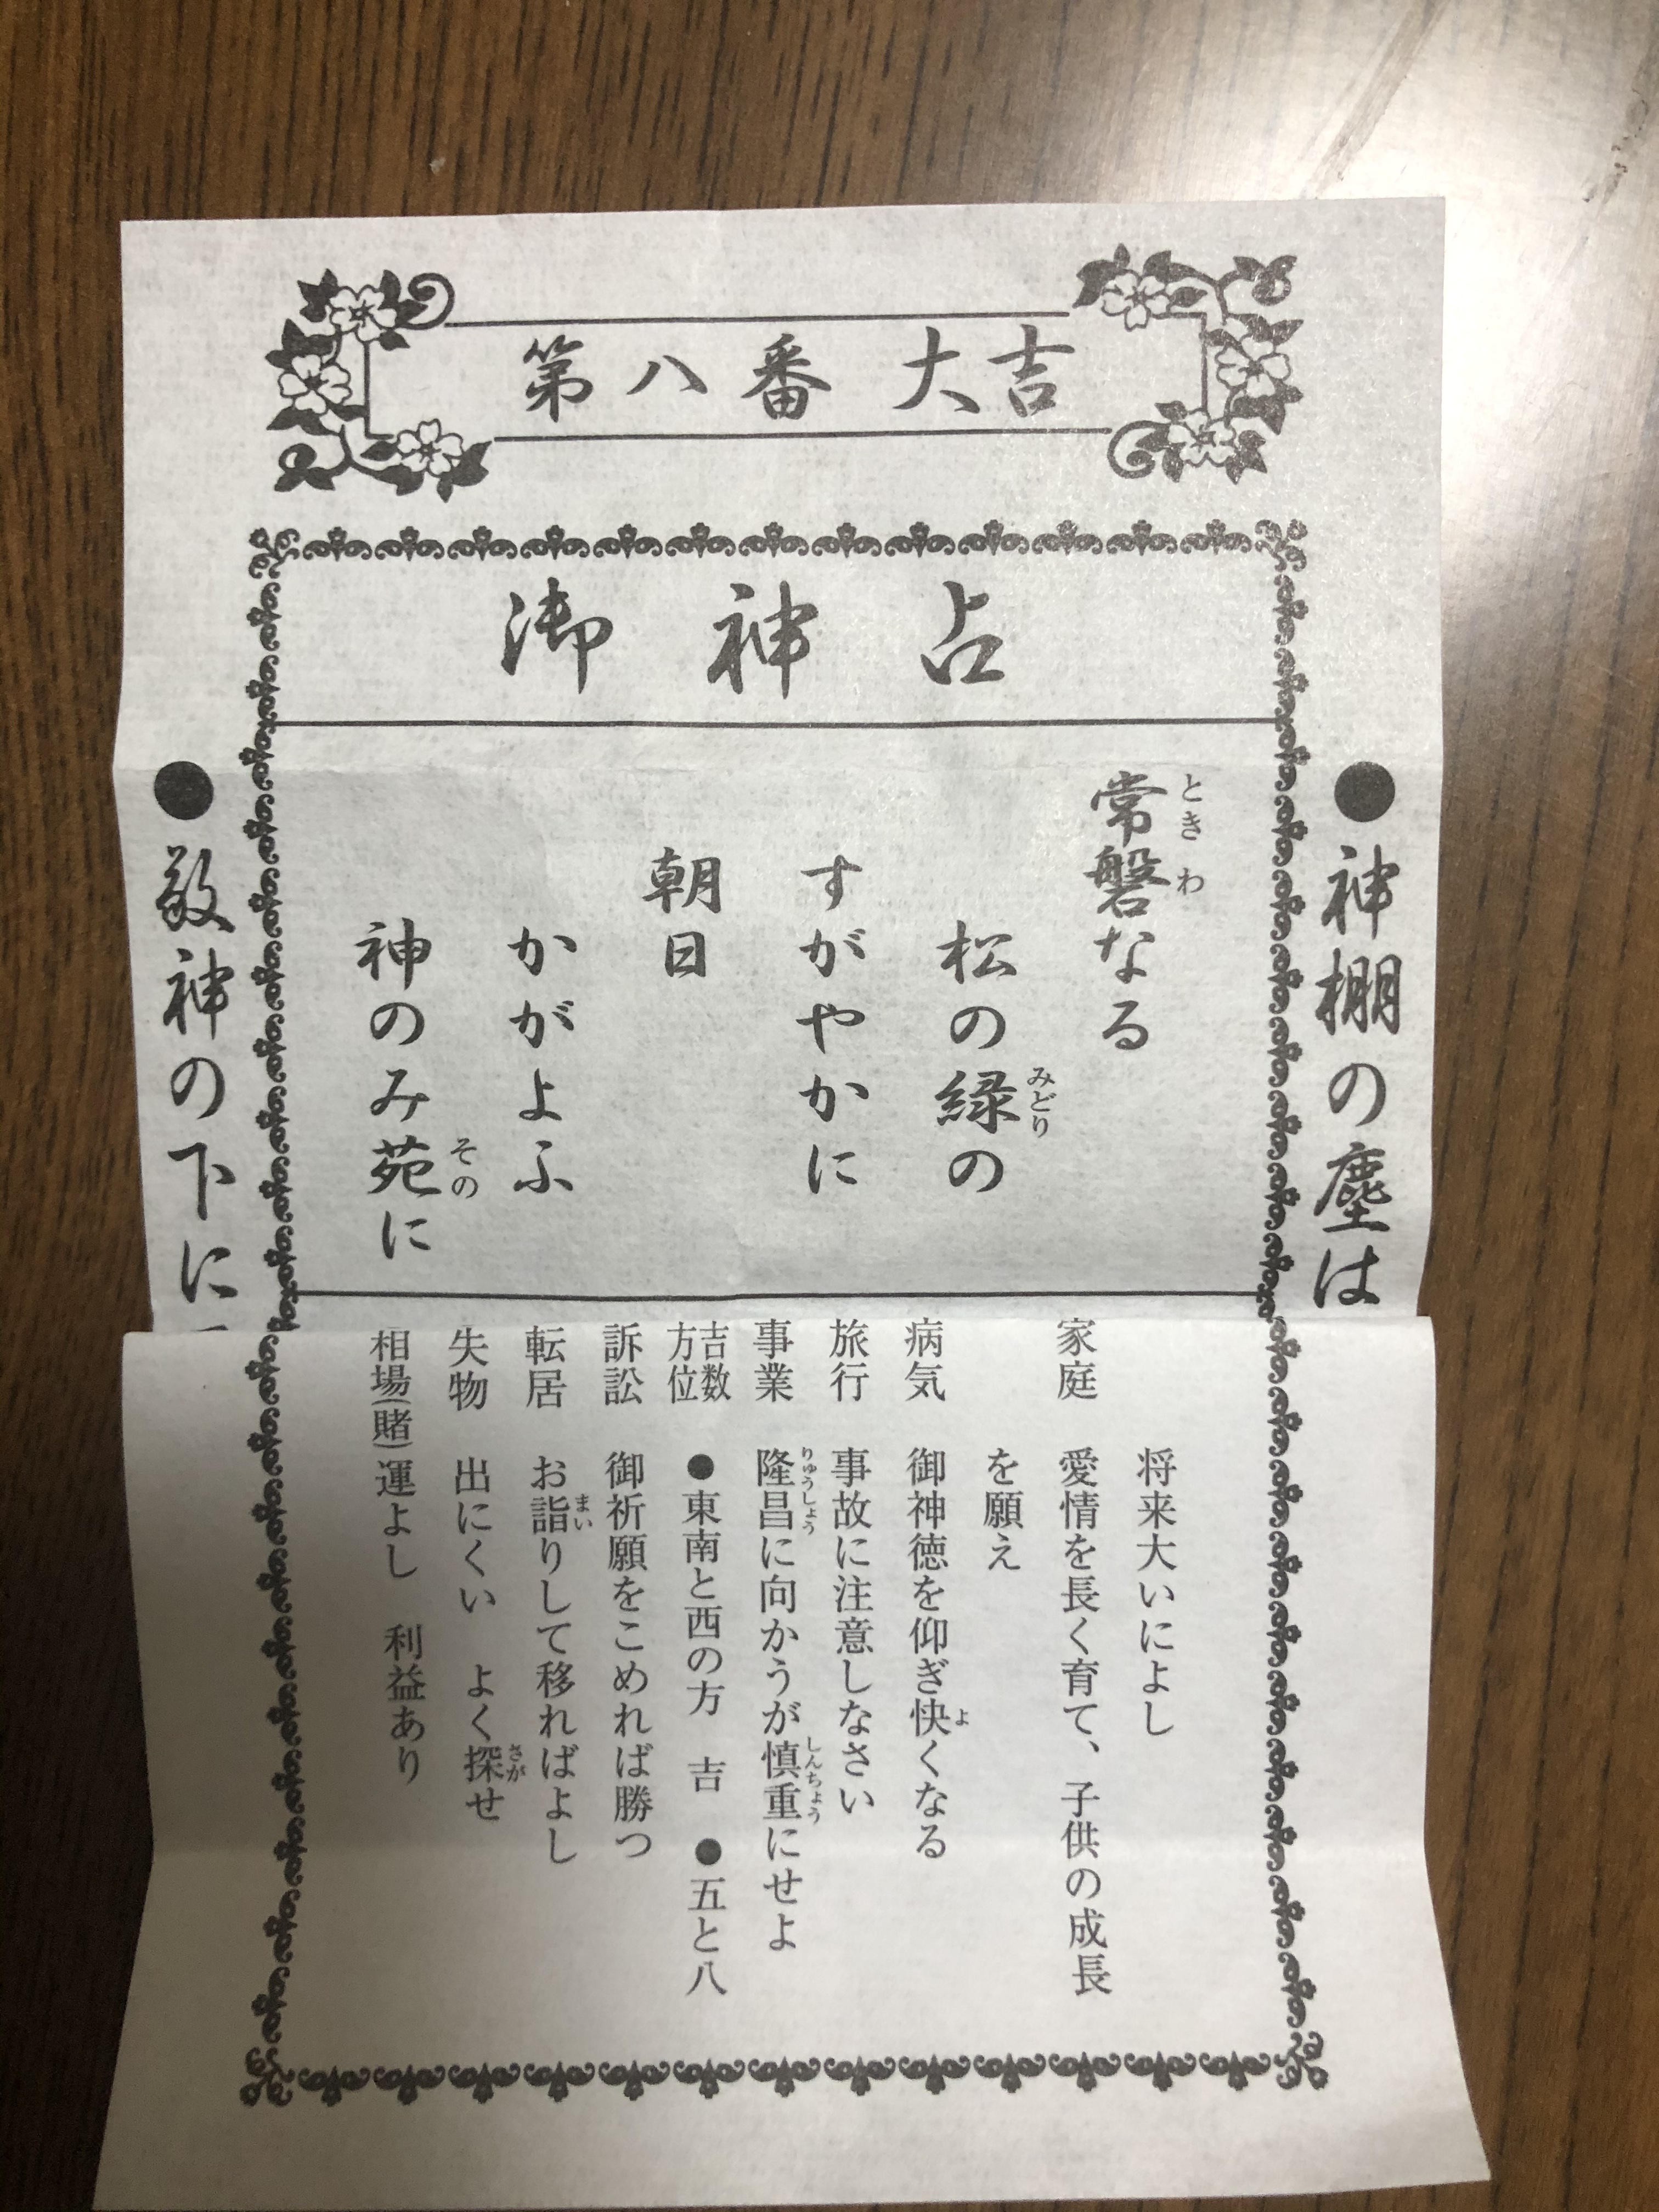 第八番 大吉
御神占
●神棚の塵は
常磐なる
ときわ
松の緑の
みどり
すがやかに
朝日
かがよふ
神のみ苑に
その
●敬神の下に
将来大いによし
家庭 愛情を長く育て、子供の成長
を願え
病気 御神徳を仰ぎ快くなる
よ
旅行 事故に注意しなさい
事業 隆昌に向かうが慎重にせよ
りゅうしょう しんちょう
吉数
方位 ●東南と西の方 吉 ●五と八
訴訟 御祈願をこめれば勝つ
転居 お詣りして移ればよし
まい
失物 出にくい よく探せ
さが
相場(賭) 運よし 利益あり